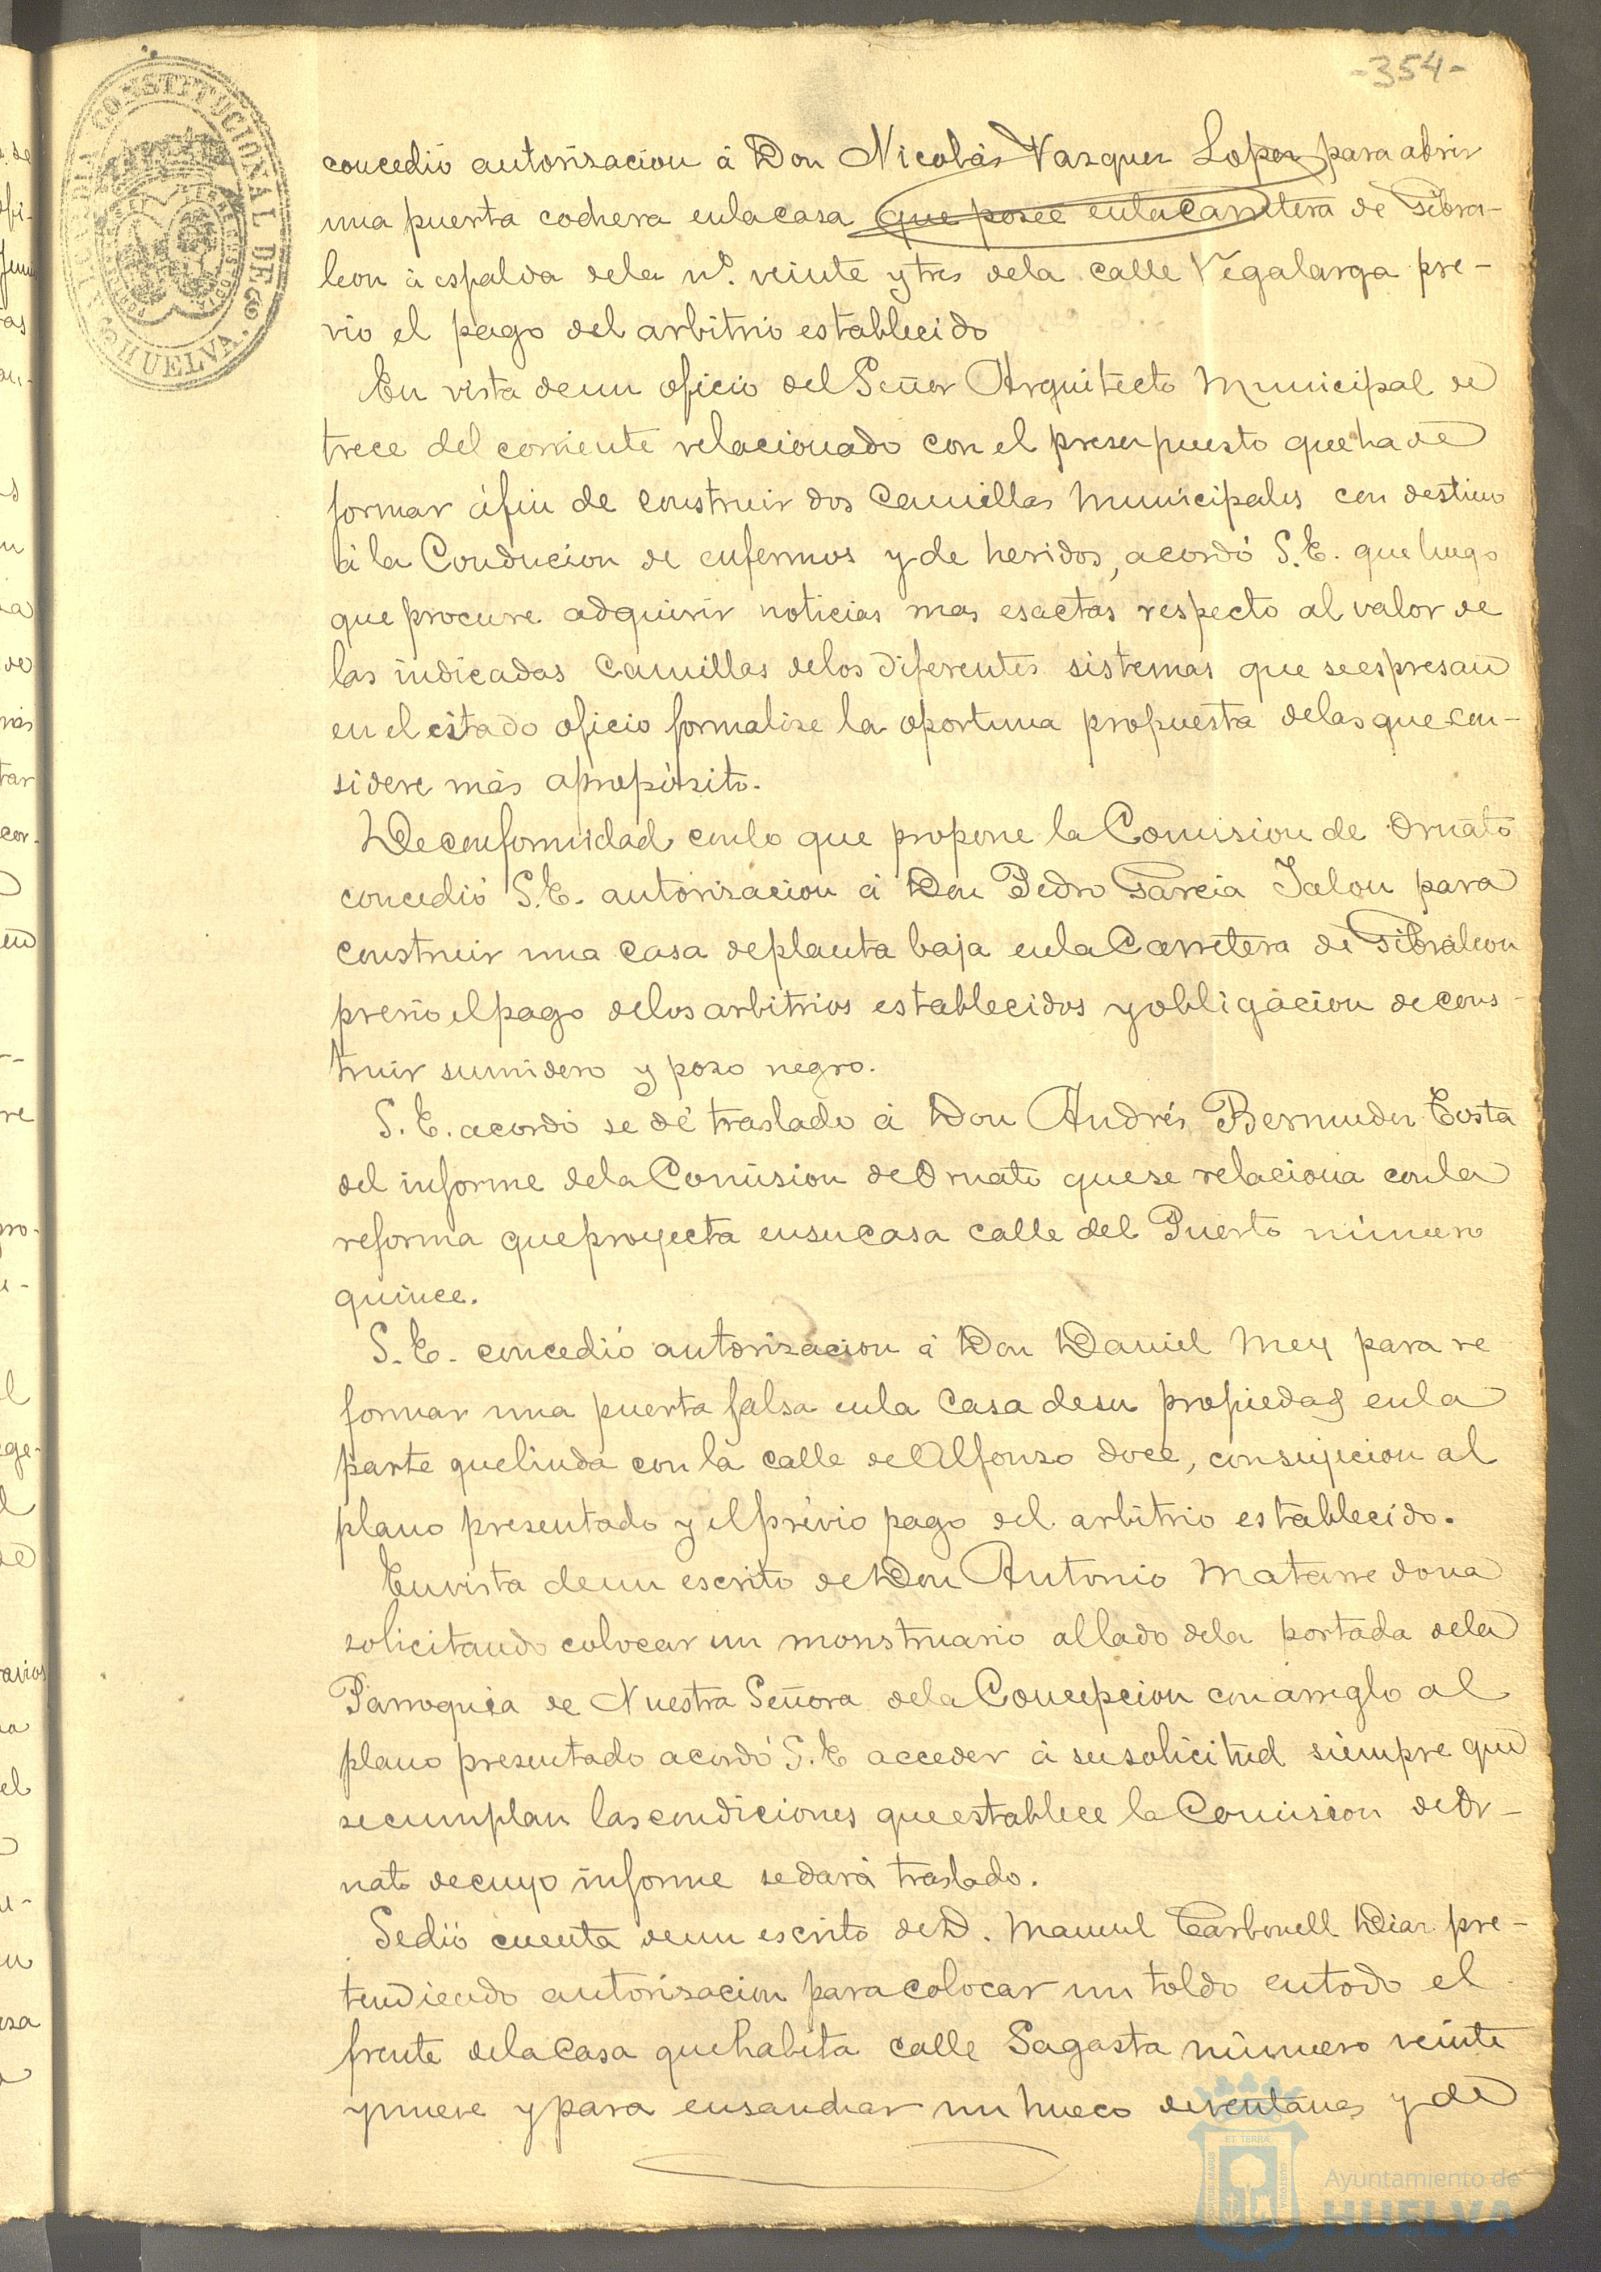 -354-
ALCALDIA CONSTITUCIONAL DE HUELVA
concedió autorizacion á Don Nicolás Vazquez Lopez para abrir
una puerta cochera en la casa que posee en la Carretera de Gibra-
leon á espalda de la nº. veinte y tres de la calle Vegalarga pre-
vio el pago del arbitrio establecido
En vista de un oficio del Señor Arquitecto Municipal de
trece del corriente relacionado con el presupuesto que ha de
formar á fin de construir dos Camillas Municipales con destino
á la Conducion de enfermos y de heridos, acordó S.E. que luego
que procure adquirir noticias mas esactas respecto al valor de
las indicadas Camillas de los diferentes sistemas que se espresan
en el citado oficio formalise la oportuna propuesta de las que con-
sidere más apropósito.
De conformidad con lo que propone la Comision de Ornato
concedió S.E. autorizacion á Don Pedro Garcia Jalon para
construir una casa de planta baja en la Carretera de Gibraleon
previo el pago de los arbitrios establecidos y obligacion de cons-
truir sumidero y pozo negro.
S. E. acordó se dé traslado á Don Andrés Bermudez Costa
del informe de la Comision de Ornato que se relaciona con la
reforma que proyecta en su casa calle del Puerto número
quince.
S. E. concedió autorizacion á Don Daniel Mey para re
formar una puerta falsa en la Casa de su propiedad en la
parte que linda con la calle de Alfonso doce, con sujecion al
plano presentado y el prévio pago del arbitrio establecido.
En vista de un escrito de Don Antonio Matarredona
solicitando colocar un monstruario al lado de la portada de la
Parroquia de Nuestra Señora de la Concepcion con arreglo al
plano presentado acordó S.E acceder á su solicitud siempre que
se cumplan las condiciones que establece la Comision de Or-
nato de cuyo informe se dará traslado.
Se dió cuenta de un escrito de D. Manuel Carbonell Diaz pre-
tendiendo autorizacion para colocar un toldo en todo el
frente de la Casa que habita calle Sagasta número veinte
y nueve y para ensanchar un hueco de ventanas y de
Ayuntamiento de
HUELVA